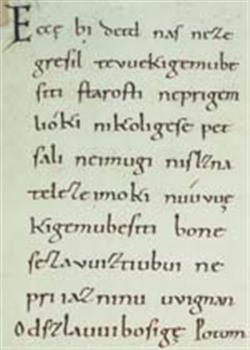 Ecce bi detd naſ neze
greſil tevuekigemube
ſiti ſtaroſti neprigem
lióki nikoligeſe pet
ſali neimugi niſlzna
teleſeimoki nuúvuę
kigemubeſiti bone
ſezavuiztiubui ne
priiazninu uvignan
Odſzlauuiboſigę Potom